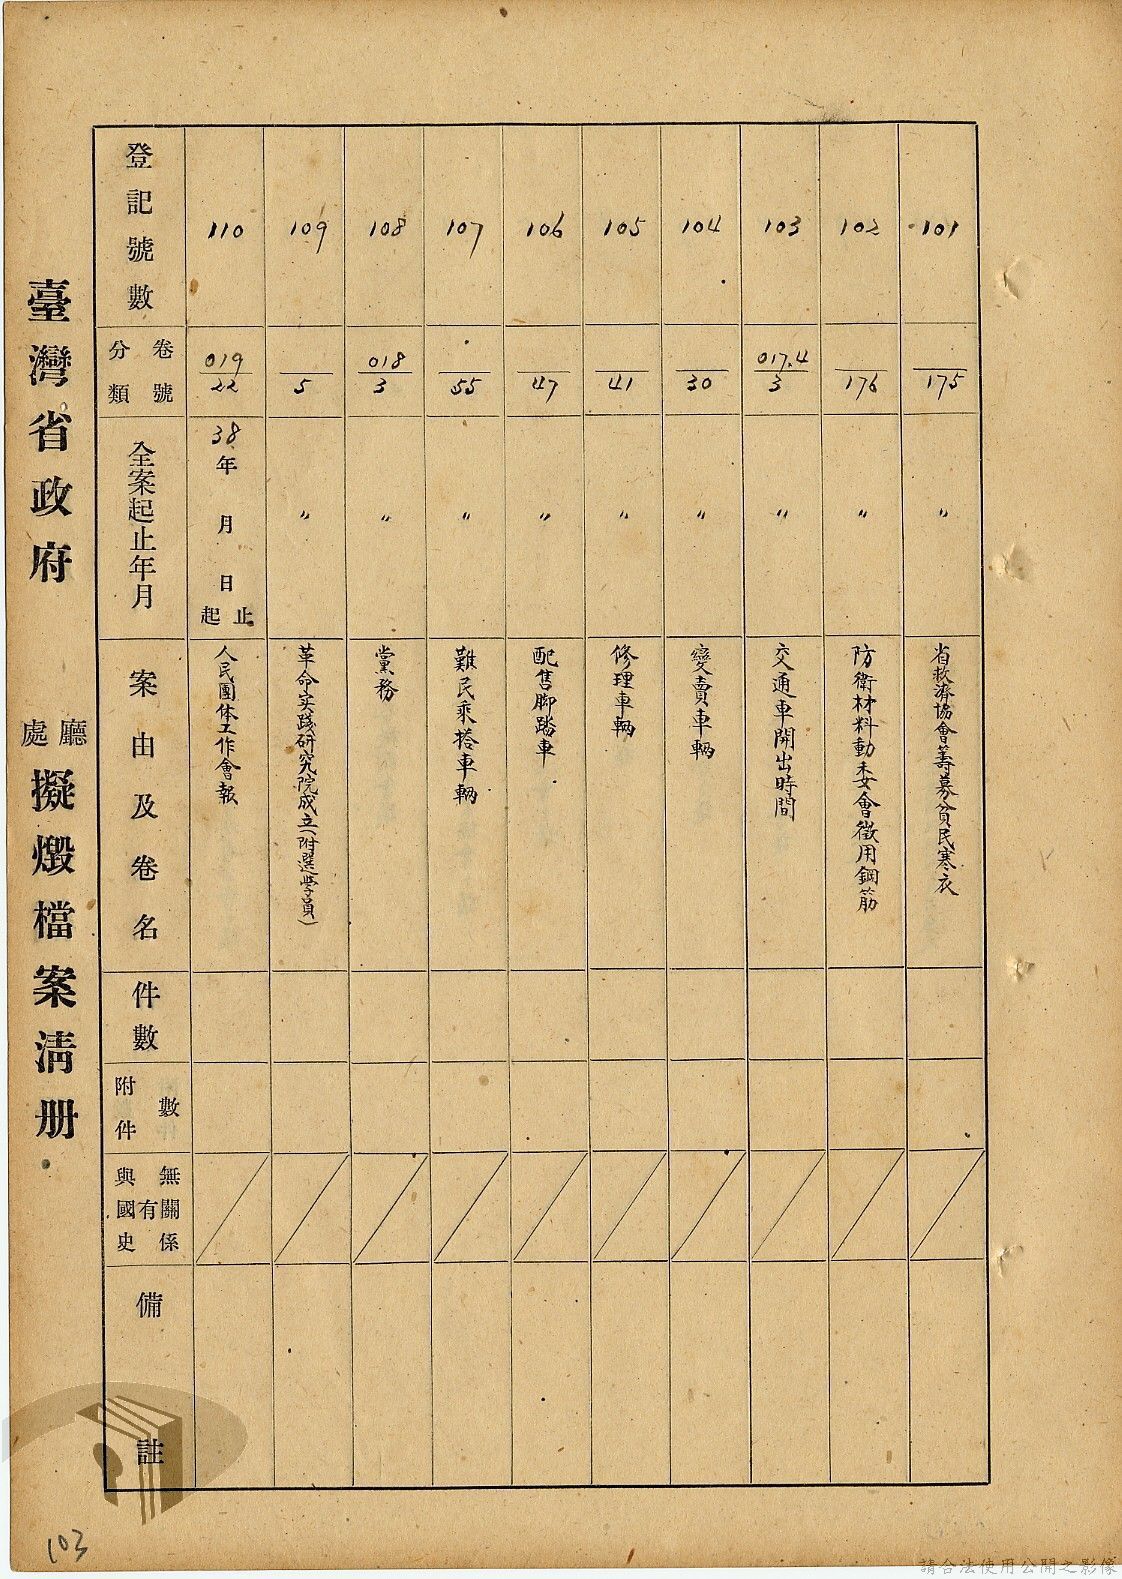 臺灣省政府 廳處 擬燬檔案清册
登記號數
分類 卷號
全案起止年月
案由及卷名
件數
附件數
與國史 有 無關係
備註
101
175
〃
省救濟協會籌募貧民寒衣
102
176
〃
防衛材料動委會徵用鋼筋
103
017.4
3
〃
交通車開出時間
104
30
〃
變賣車輛
105
41
〃
修理車輛
106
47
〃
配售脚踏車
107
55
〃
難民乘搭車輛
108
018
3
〃
黨務
109
5
〃
革命实践研究院成立(附選学員)
110
019
22
38年 月 日 起止
人民團体工作會報
103
請合法使用公開之影像